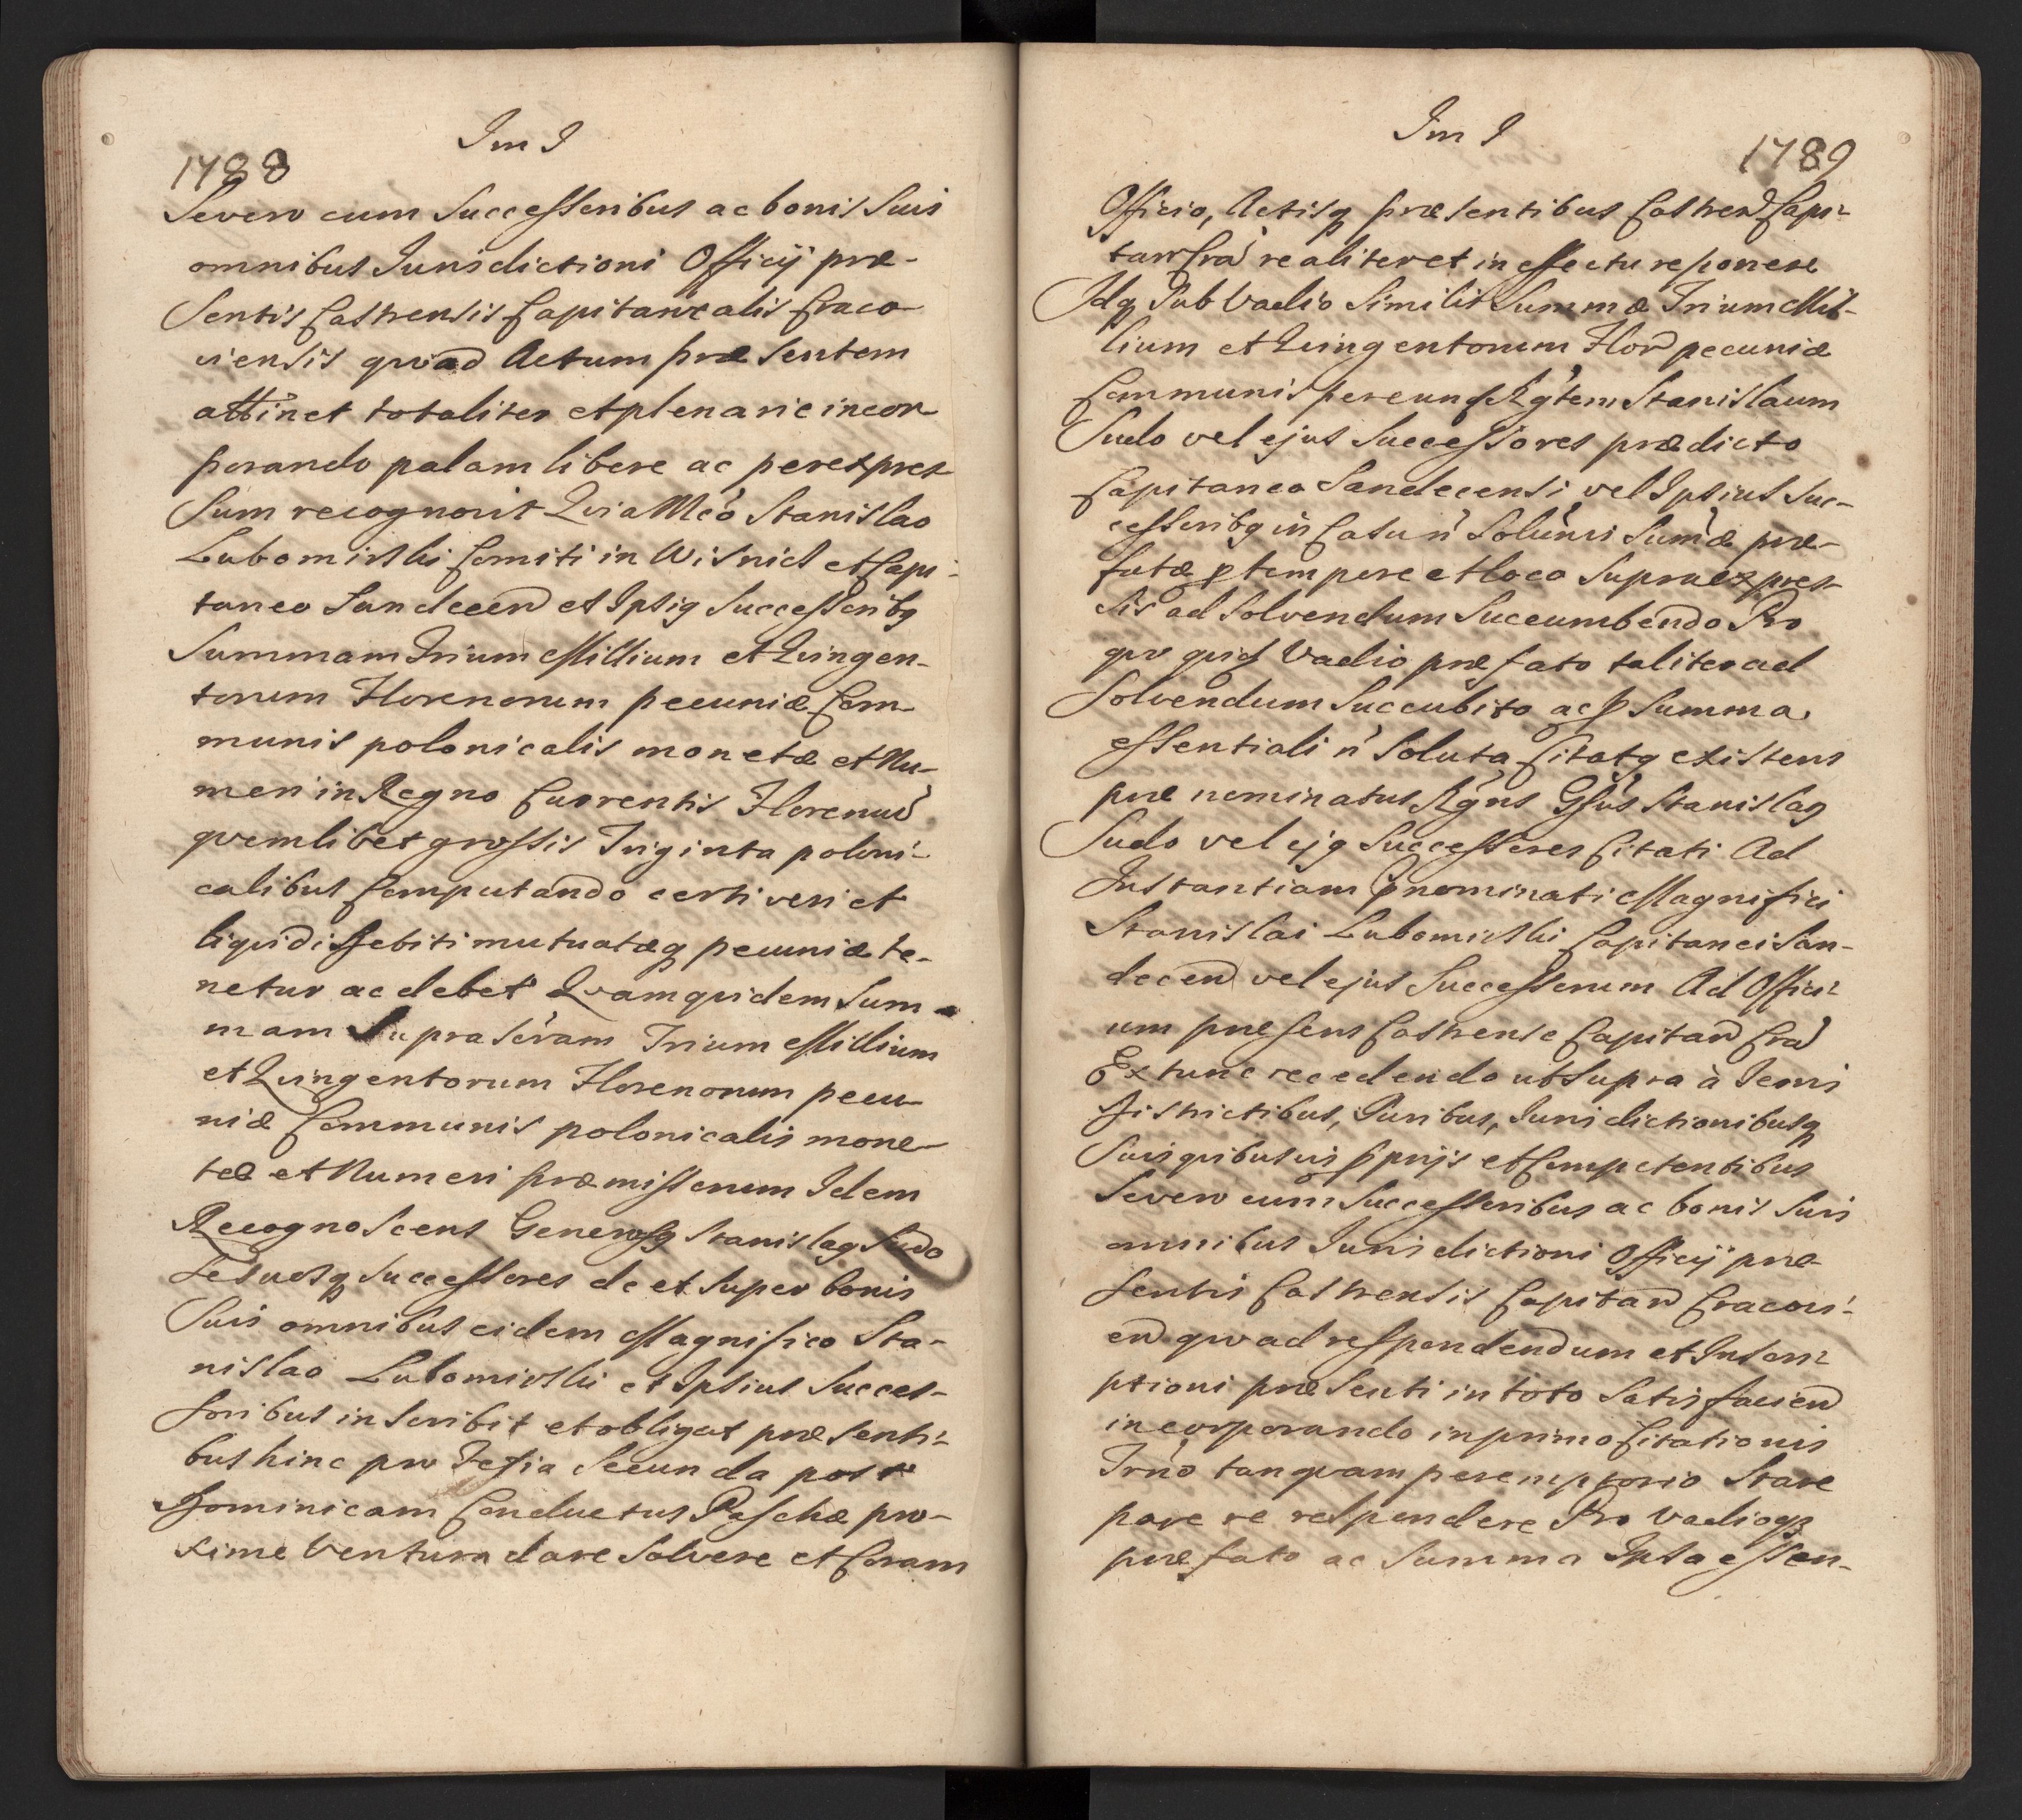 Im I
1788
Severo cum Successoribus ac bonis Suis
omnibus Iurisdictioni Officij præ-
Sentis Castrensis Capitanealis Craco
viensis quoad Actum præsentem
attinet totaliter et plenarie incor
porando palam libere ac per expres
Sum recognovit Quia Mco Stanislao
Lubomirski Comiti in Wisnicz et Capi-
taneo Sandecen et Ipsiq Successoribq
Summam Trium Millium et Quingen-
torum Florenorum pecuniæ Com
munis polonicalis monetæ et Nu-
meri in Regno Currentis Florenum
quemlibet grossis Triginta poloni-
calibus Computando certi veri et
liquidi Debiti mutuatæq pecuniæ te-
netur ac debet Quam quidem Sum
mam Suprascram Trium Millium
et Quingentorum Florenorum pecu
niæ Communis polonicalis mone
tæ et Numeri præmissorum Idem
Recognoscens Generosq Stanislaq Sudo
Se Suosq Successores de et Super bonis
Suis omnibus eidem Magnifico Sta-
nislao Lubomirski et Ipsius Succes-
soribus inscribit et obligat præsenti-
bus hinc pro Feria Secunda post
Dominicam Conductus Paschæ pro-
xime Ventura dare Solvere et Coram
Im I
1789
Officio, Actisq præsentibus Castren Capi-
tan Cra realiter et in effectu reponere
Idq Sub Vadio Similis Summæ Trium Mil-
lium et Quingentorum Flor pecuniæ
Communis per eund Rgtem Stanislaum
Sudo vel ejus Successores prædicto
Capitaneo Sandecensi vel Ipsius Suc-
cessoribq in Casu n Solunis Sumæ præ-
fatæ p tempore et loco Supra expres
Sis ad Solvendum Succumbendo Pro
quo quid Vadio præfato taliter ad
Solvendum Succubito ac p Summa
essentiali n Soluta Citatq existens
prænominatus Rgns Gsus Stanislaq
Sudo vel ejq Successores Citati Ad
Instantiam Pnominati Magnifici
Stanislai Lubomirski Capitanei San-
decen vel ejus Successorum Ad Offici-
um præsens Castrense Capitan Cra
Extunc recedendo ut Supra à Terris
Districtibus, Iuribus, Iurisdictionibusq
Suis quibusvis pprijs et Competentibus
Severo cum Successoribus ac bonis Suis
omnibus Iurisdictioni Officij præ
Sentis Castrensis Capitan Cracovi-
en quoad respondendum et Inscri-
ptioni præsenti in toto Satisfacien
incorporando in primo Citationis
Trno tanquam peremptorio Stare
parere respondere Pro Vadioq
præfato ac Summa Ipsa essen-